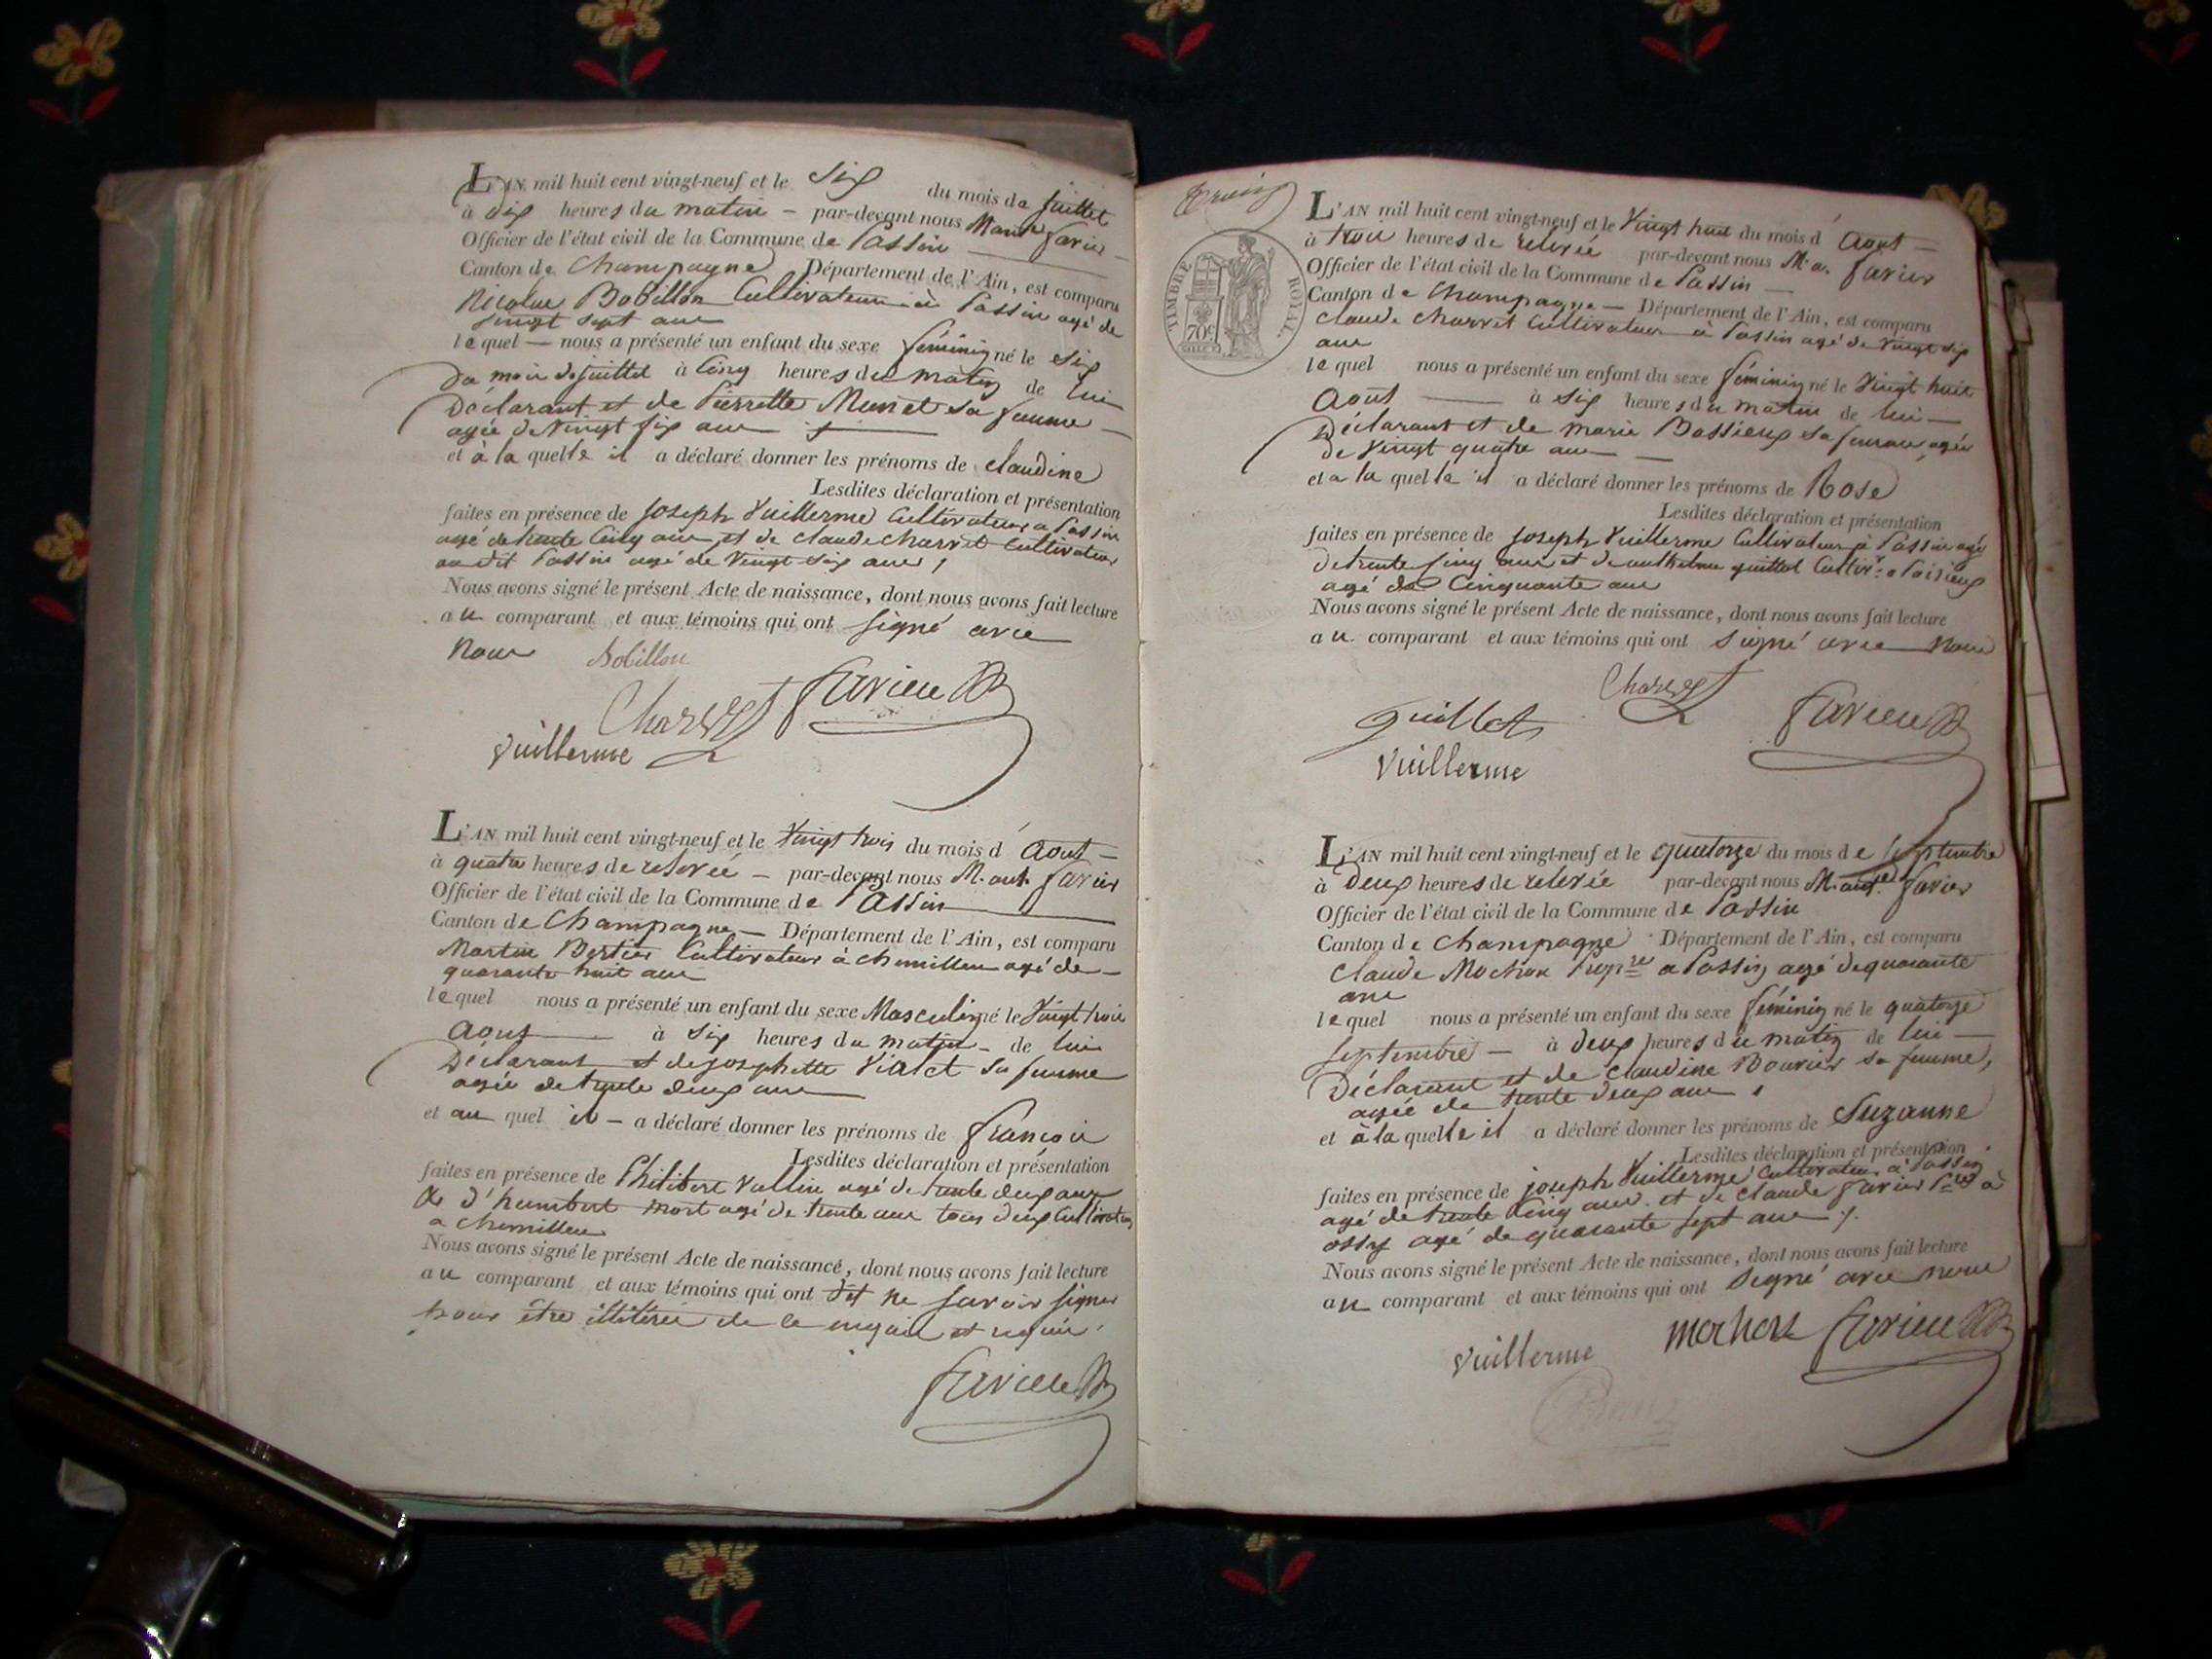 L'AN mil huit cent vingt-neuf et le Six du mois de juillet
à dix heures du matin – par-devant nous Favier
Officier de l'état civil de la Commune de Passin
Canton de Champagne Département de l'Ain, est comparu
Nicolas Bobillon Cultivateur à Passin agé de
vingt sept ans
lequel — nous a présenté un enfant du sexe féminin né le six
du mois de juillet à cinq heures du matin de lui
Déclarant et de Pierrette Munet sa femme
agée de Vingt six ans
et à la quelle il a déclaré donner les prénoms de Claudine
Lesdites déclaration et présentation
faites en présence de joseph Vuillerme Cultivateur a Passin
agé de trente cinq ans et de claude Charvet Cultivateur
audit Passin agé de Vingt six ans,
Nous avons signé le présent Acte de naissance, dont nous avons fait lecture
au comparant et aux témoins qui ont signé avec
nous Bobillon
Charvet Favier
Vuillerme
L'AN mil huit cent vingt-neuf et le Vingt trois du mois d'Aout –
à quatre heures de relevée – par-devant nous M. ant. Favier
Officier de l'état civil de la Commune de Passin
Canton de Champagne – Département de l'Ain, est comparu
Martin Bertier Cultivateur à Chemillieu agé de –
quarante huit ans
lequel nous a présenté un enfant du sexe Masculin né le Vingt trois
Aout — à six heures du matin – de lui
Déclarant et de josephette Vialet sa femme
agée de trente deux ans
et au quel il – a déclaré donner les prénoms de françois
Lesdites déclaration et présentation
faites en présence de Philibert Vallin agé de trente deux ans
& d'humbert mort agé de trente ans tous deux Cultivateurs
a Chemillieu
Nous avons signé le présent Acte de naissance, dont nous avons fait lecture
au comparant et aux témoins qui ont dit ne savoir signer
pour être illitérés de ce enquis et requis.
Favier
TIMBRE ROYAL
70c
L'AN mil huit cent vingt-neuf et le Vingt huit du mois d'Aout –
à trois heures de relevée par-devant nous M. a. Favier
Officier de l'état civil de la Commune de Passin —
Canton de Champagne – Département de l'Ain, est comparu
claude Charvet Cultivateur à Passin agé de vingt six
ans
lequel nous a présenté un enfant du sexe féminin né le Vingt huit
Aout — à six heures du matin de lui –
Déclarant et de marie Bassieux sa femme agée
de Vingt quatre ans —
et a la quelle il a déclaré donner les prénoms de Rose
Lesdites déclaration et présentation
faites en présence de joseph Vuillerme Cultivateur à Passin agé
de trente cinq ans et de anthelme guillot Cultiv.r a Poisieux
agé de Cinquante ans
Nous avons signé le présent Acte de naissance, dont nous avons fait lecture
au comparant et aux témoins qui ont signé avec nous
Charvet
guillot Favier
Vuillerme
L'AN mil huit cent vingt-neuf et le quatorze du mois de septembre
à Deux heures de relevée par-devant nous M. Favier
Officier de l'état civil de la Commune de Passin
Canton de Champagne Département de l'Ain, est comparu
Claude Mochon Propre a Passin agé de quarante
ans
lequel nous a présenté un enfant du sexe féminin né le quatorze
septembre – à deux heures du matin de lui —
Déclarant et de Claudine Bouvier sa femme,
agée de trente deux ans
et à la quelle il a déclaré donner les prénoms de Suzanne
Lesdites déclaration et présentation
faites en présence de joseph Vuillerme Cultivateur à Passin
agé de trente cinq ans. et de Claude Favier à
ossy agé de quarante sept ans
Nous avons signé le présent Acte de naissance, dont nous avons fait lecture
au comparant et aux témoins qui ont signé avec nous
Vuillerme mochon Favier